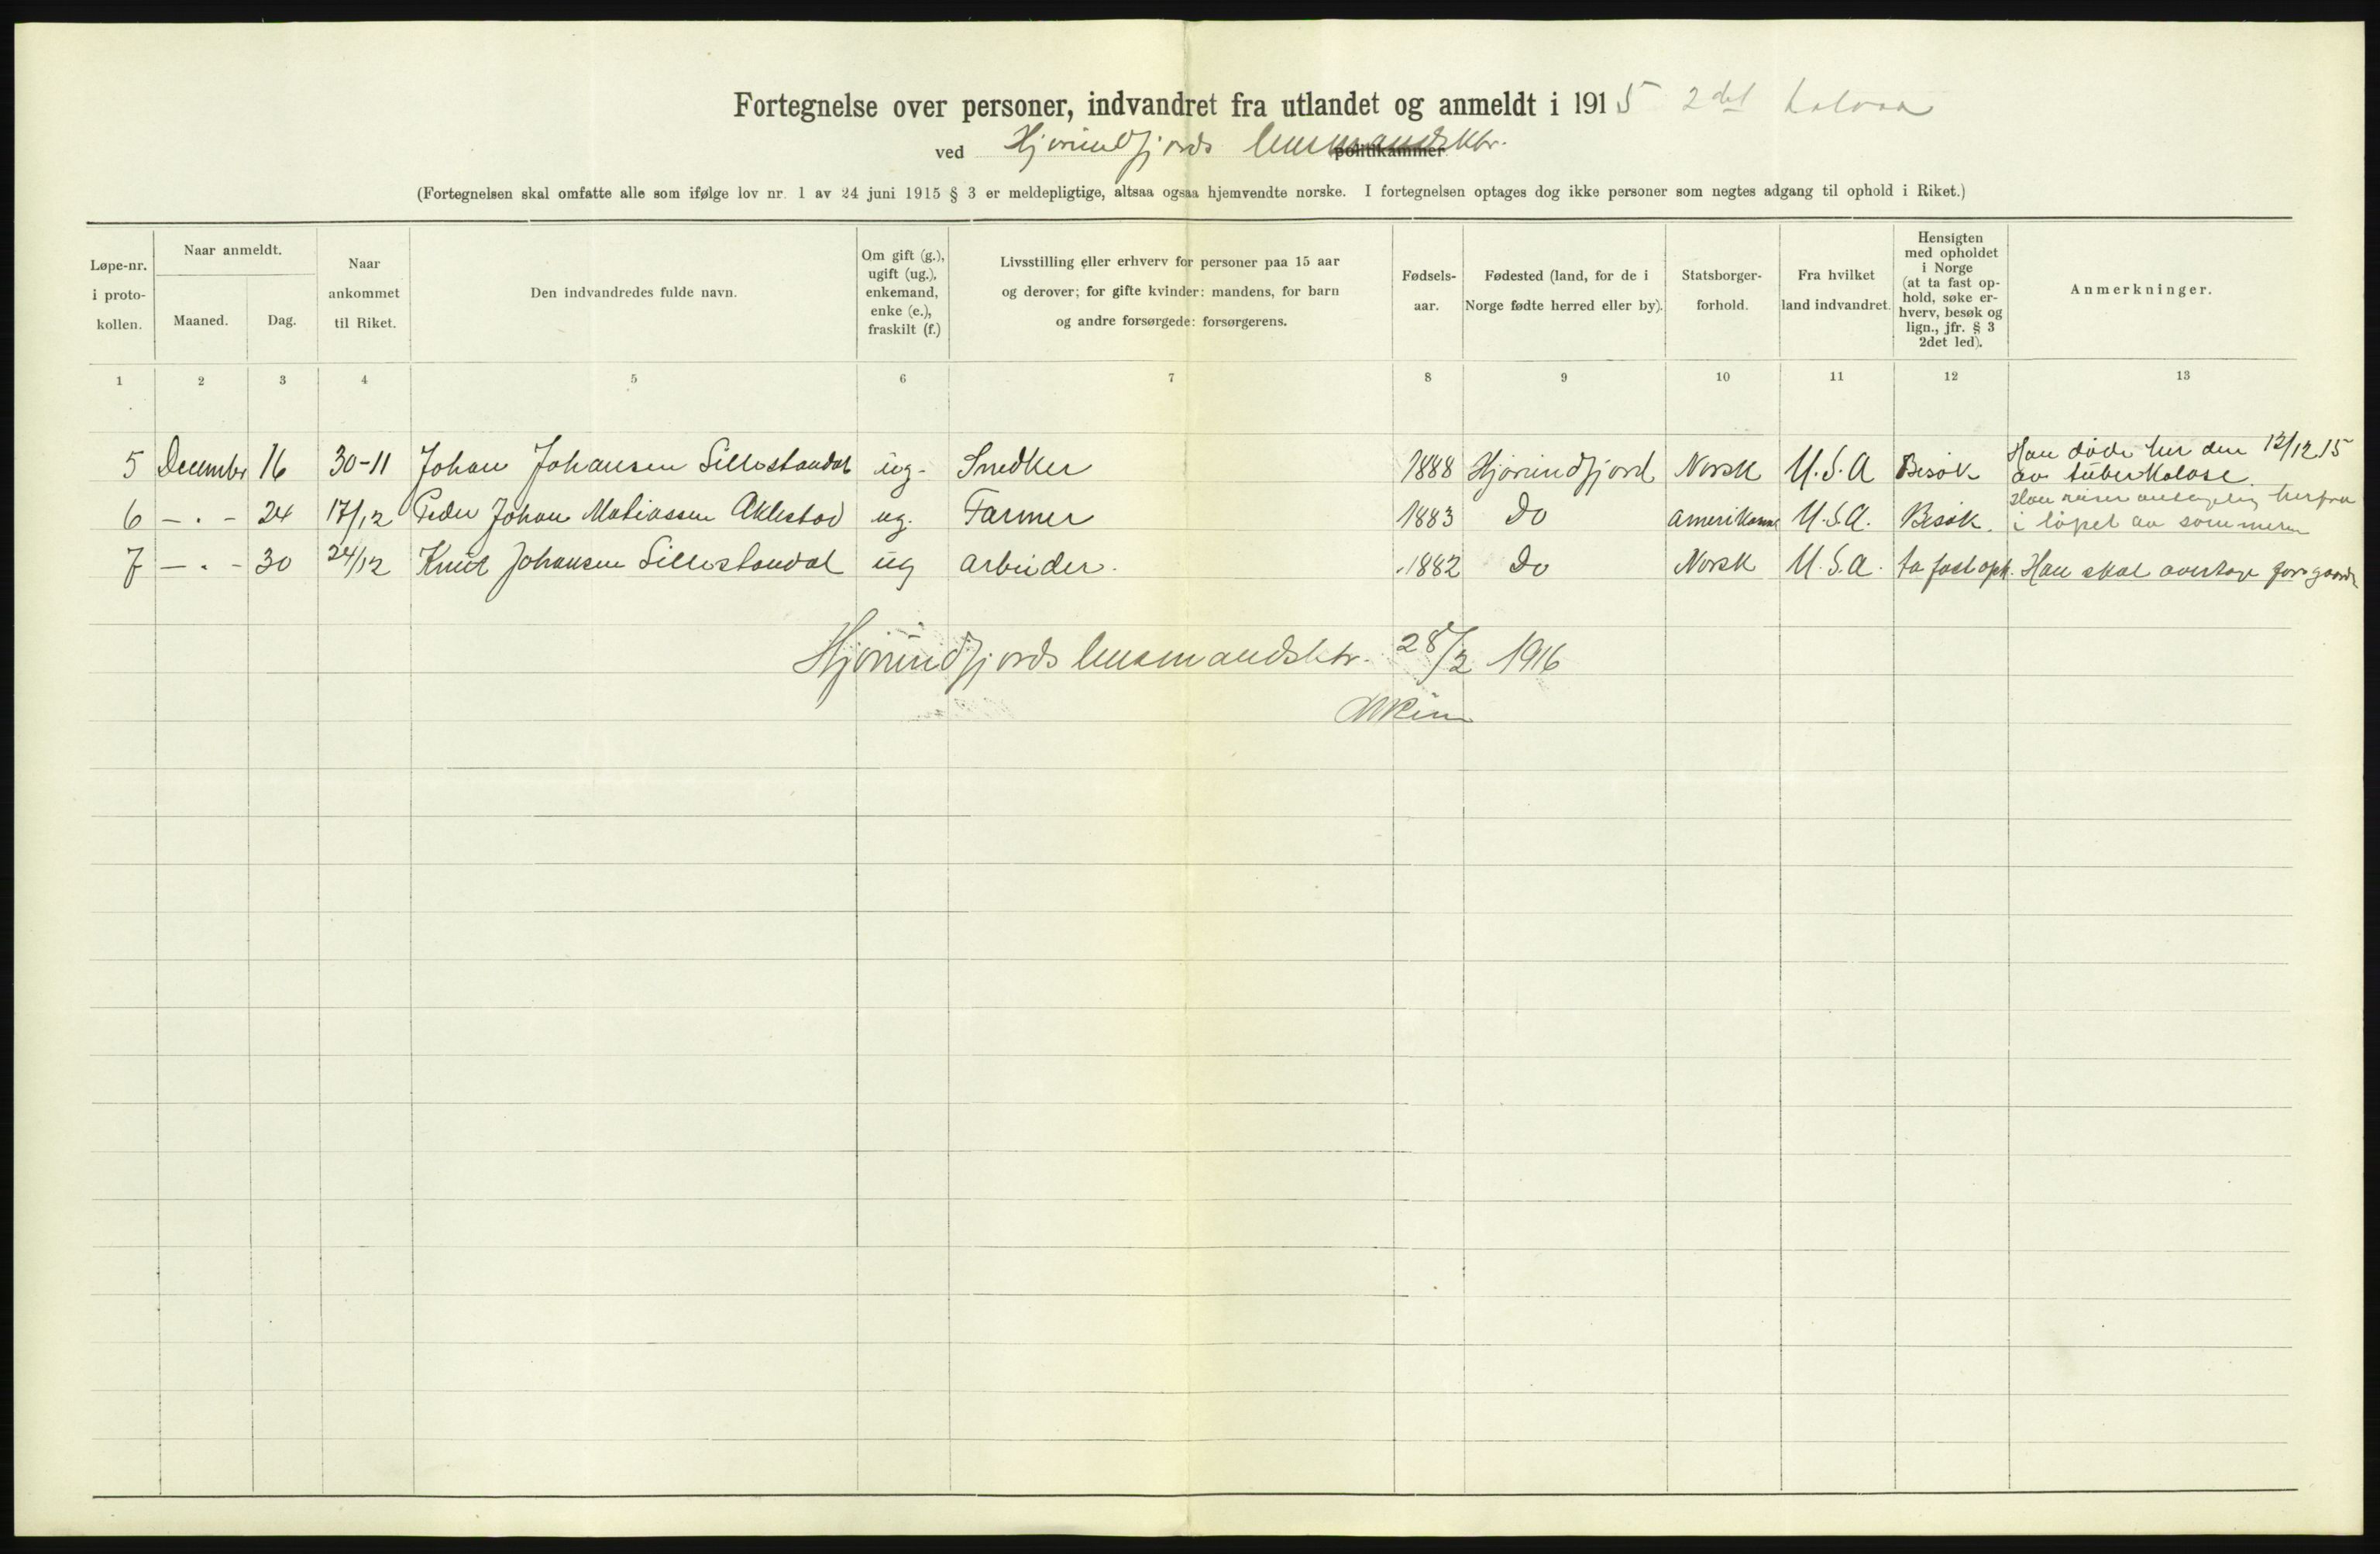 Fortegnelse over personer, indvandret fra utlandet og anmeldt i 1915 2det halvaar
ved Hjørundfjords lensmandsktr. politikammer
(Fortegnelsen skal omfatte alle som ifølge lov nr. 1 av 24 juni 1915 § 3 er meldepligtige, altsaa ogsaa hjemvendte norske. I fortegnelsen optages dog ikke personer som negtes adgang til ophold i Riket.)
Løpe-nr. i proto-kollen.
Naar anmeldt.
Maaned. Dag.
Naar ankommet til Riket.
Den indvandredes fulde navn.
Om gift (g.), ugift (ug.), enkemand, enke (e.), fraskilt (f.)
Livsstilling eller erhverv for personer paa 15 aar og derover; for gifte kvinder: mandens, for barn og andre forsørgede: forsørgerens.
Fødsels-aar.
Fødested (land, for de i Norge fødte herred eller by).
Statsborger-forhold.
Fra hvilket land indvandret.
Hensigten med opholdet i Norge (at ta fast op-hold, søke er-hverv, besøk og lign., jfr. § 3 2det led).
Anmerkninger.
1 2 3 4 5 6 7 8 9 10 11 12 13
5 December 16 30-11 Johan Johansen Sillestandal ug. Snedker 1888 Hjørundfjord Norsk U.S.A Besøk Han døde her den 12/12 15 av tuberkolose.
6 — . — 24 17/12 Peder Johan Matiassen Aklestad ug. Farmer 1883 Do Amerikansk U.S.A. Besøk. Han reiser antagelig herfra i løpet av sommeren
7 — . — 30 24/12 Knut Johansen Sillestandal ug Arbeider. 1882 Do Norsk U.S.A. ta fast oph. Han skal overtage farsgaarden
Hjørundfjords lensmandsktr. 28/2 1916